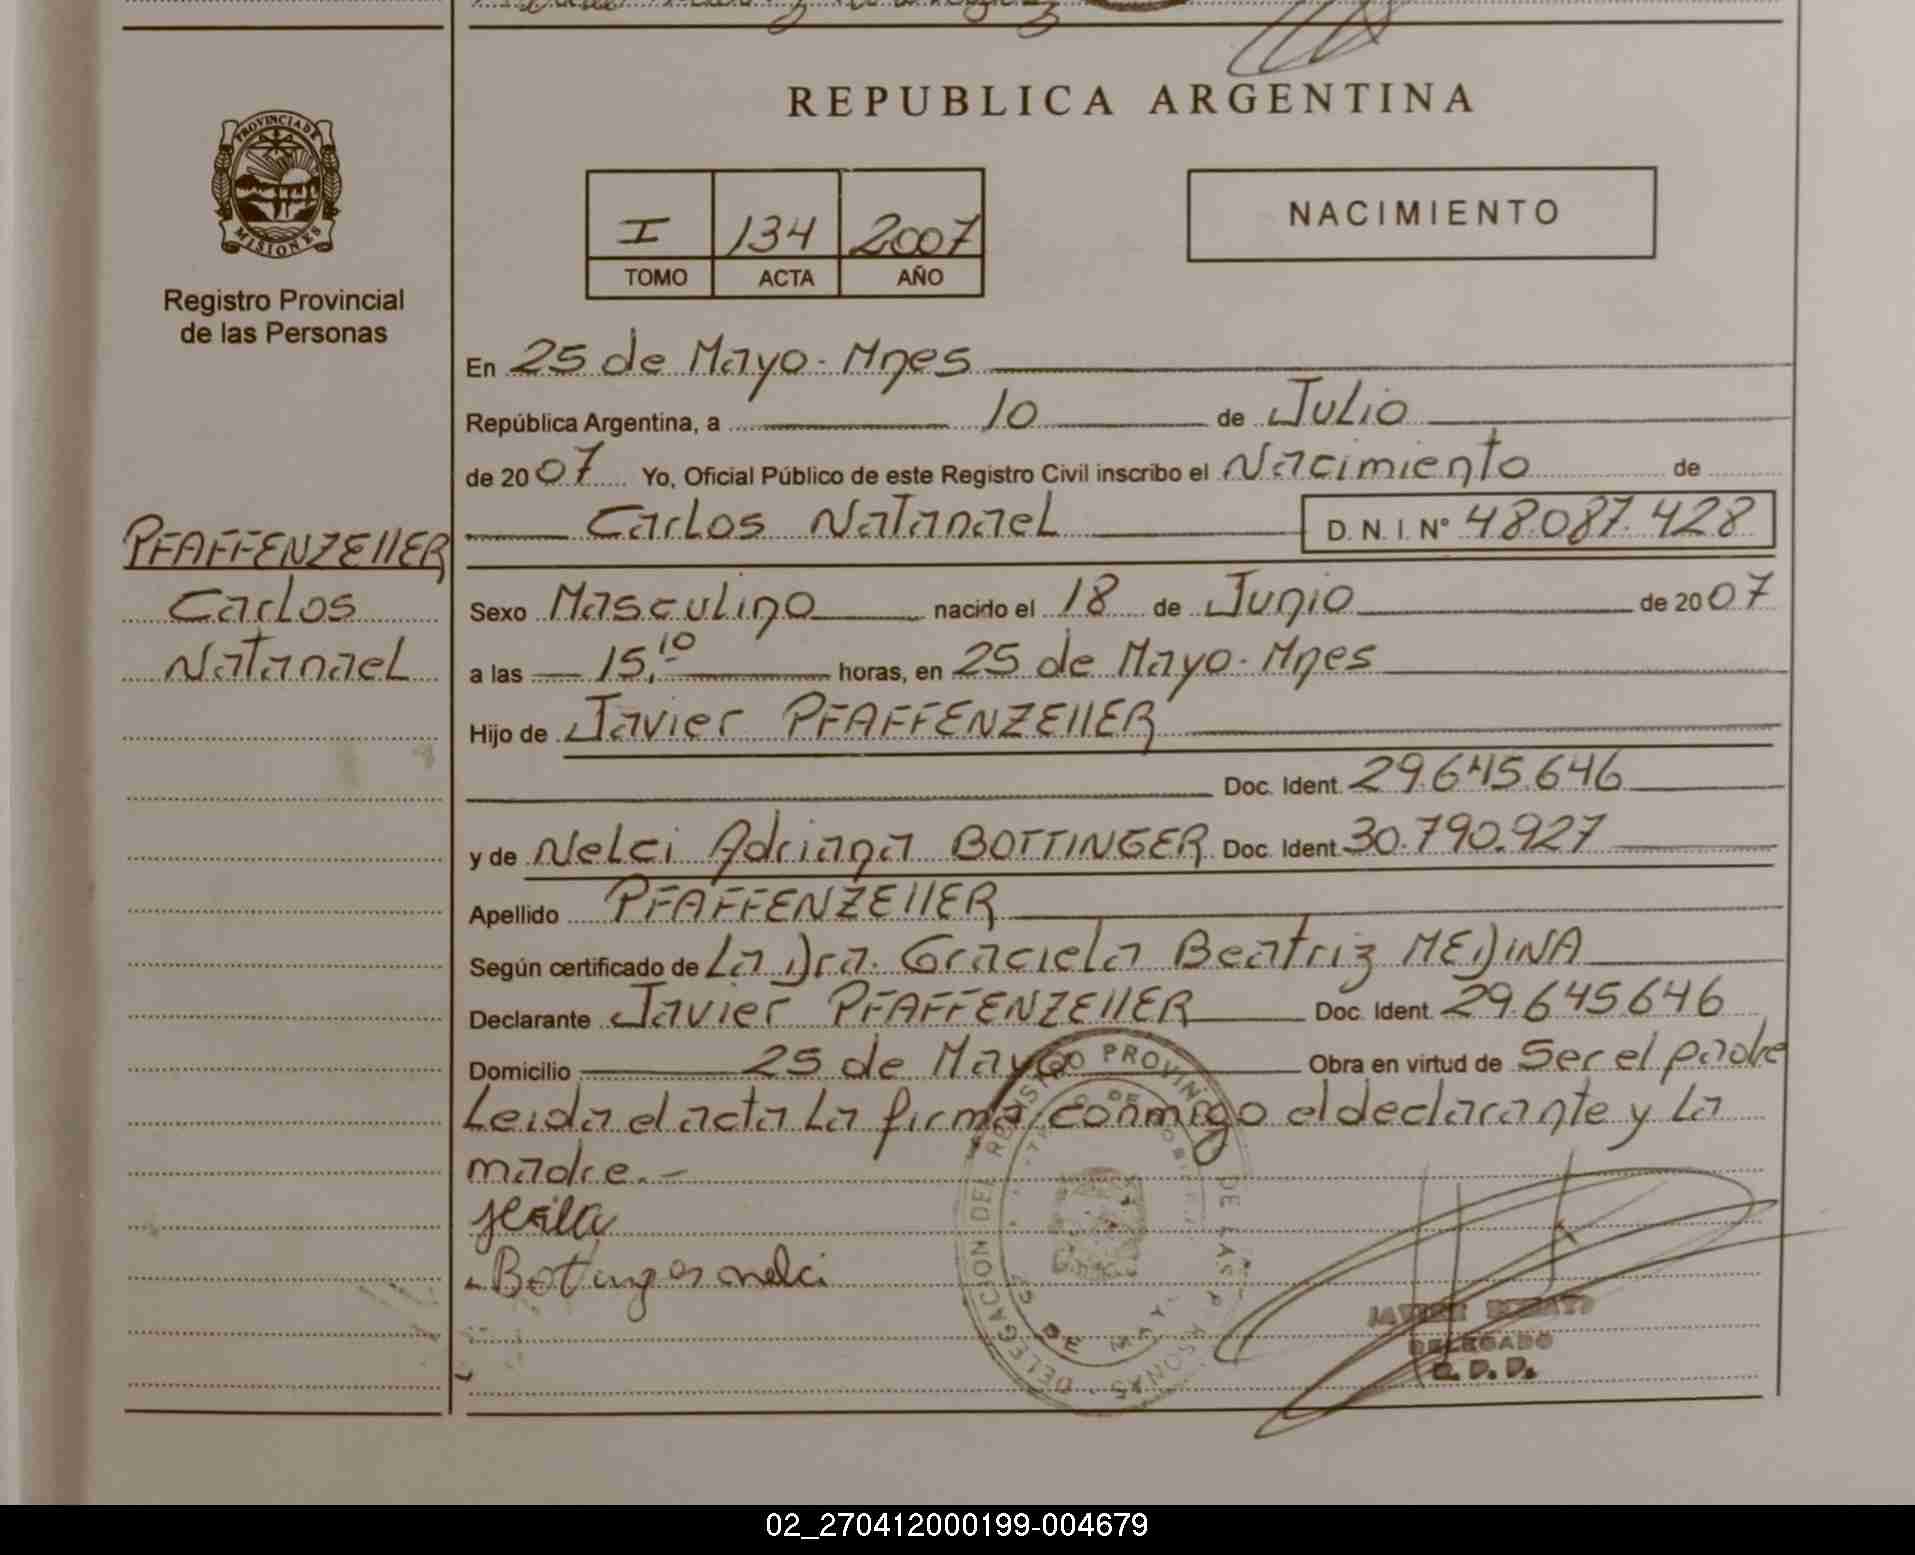 REPUBLICA ARGENTINA
PROVINCIA DE
MISIONES
Registro Provincial
de las Personas
I 134 2007
TOMO ACTA AÑO
NACIMIENTO
En 25 de Mayo - Mnes
República Argentina, a 10 de Julio
de 2007 Yo, Oficial Público de este Registro Civil inscribo el Nacimiento de
Carlos Natanael D. N. I. Nº 48.087.428
PFAFFENZEllER
Carlos
Natanael
Sexo Masculino nacido el 18 de Junio de 2007
a las 15,10 horas, en 25 de Mayo - Mnes
Hijo de Javier PFAFFENZEllER
Doc. Ident. 29.645.646
y de Nelci Adriana BOTTINGER Doc. Ident. 30.790.927
Apellido PFAFFENZEllER
Según certificado de La Dra. Graciela Beatriz MEDINA
Declarante Javier PFAFFENZEllER Doc. Ident. 29.645.646
Domicilio 25 de Mayo Obra en virtud de Ser el padre
Leida el acta La firma conmigo el declarante y La
madre.-
DELEGACION DEL REGISTRO PROVINCIAL DE LAS PERSONAS
25 DE MAYO
DELEGADO
02_270412000199-004679